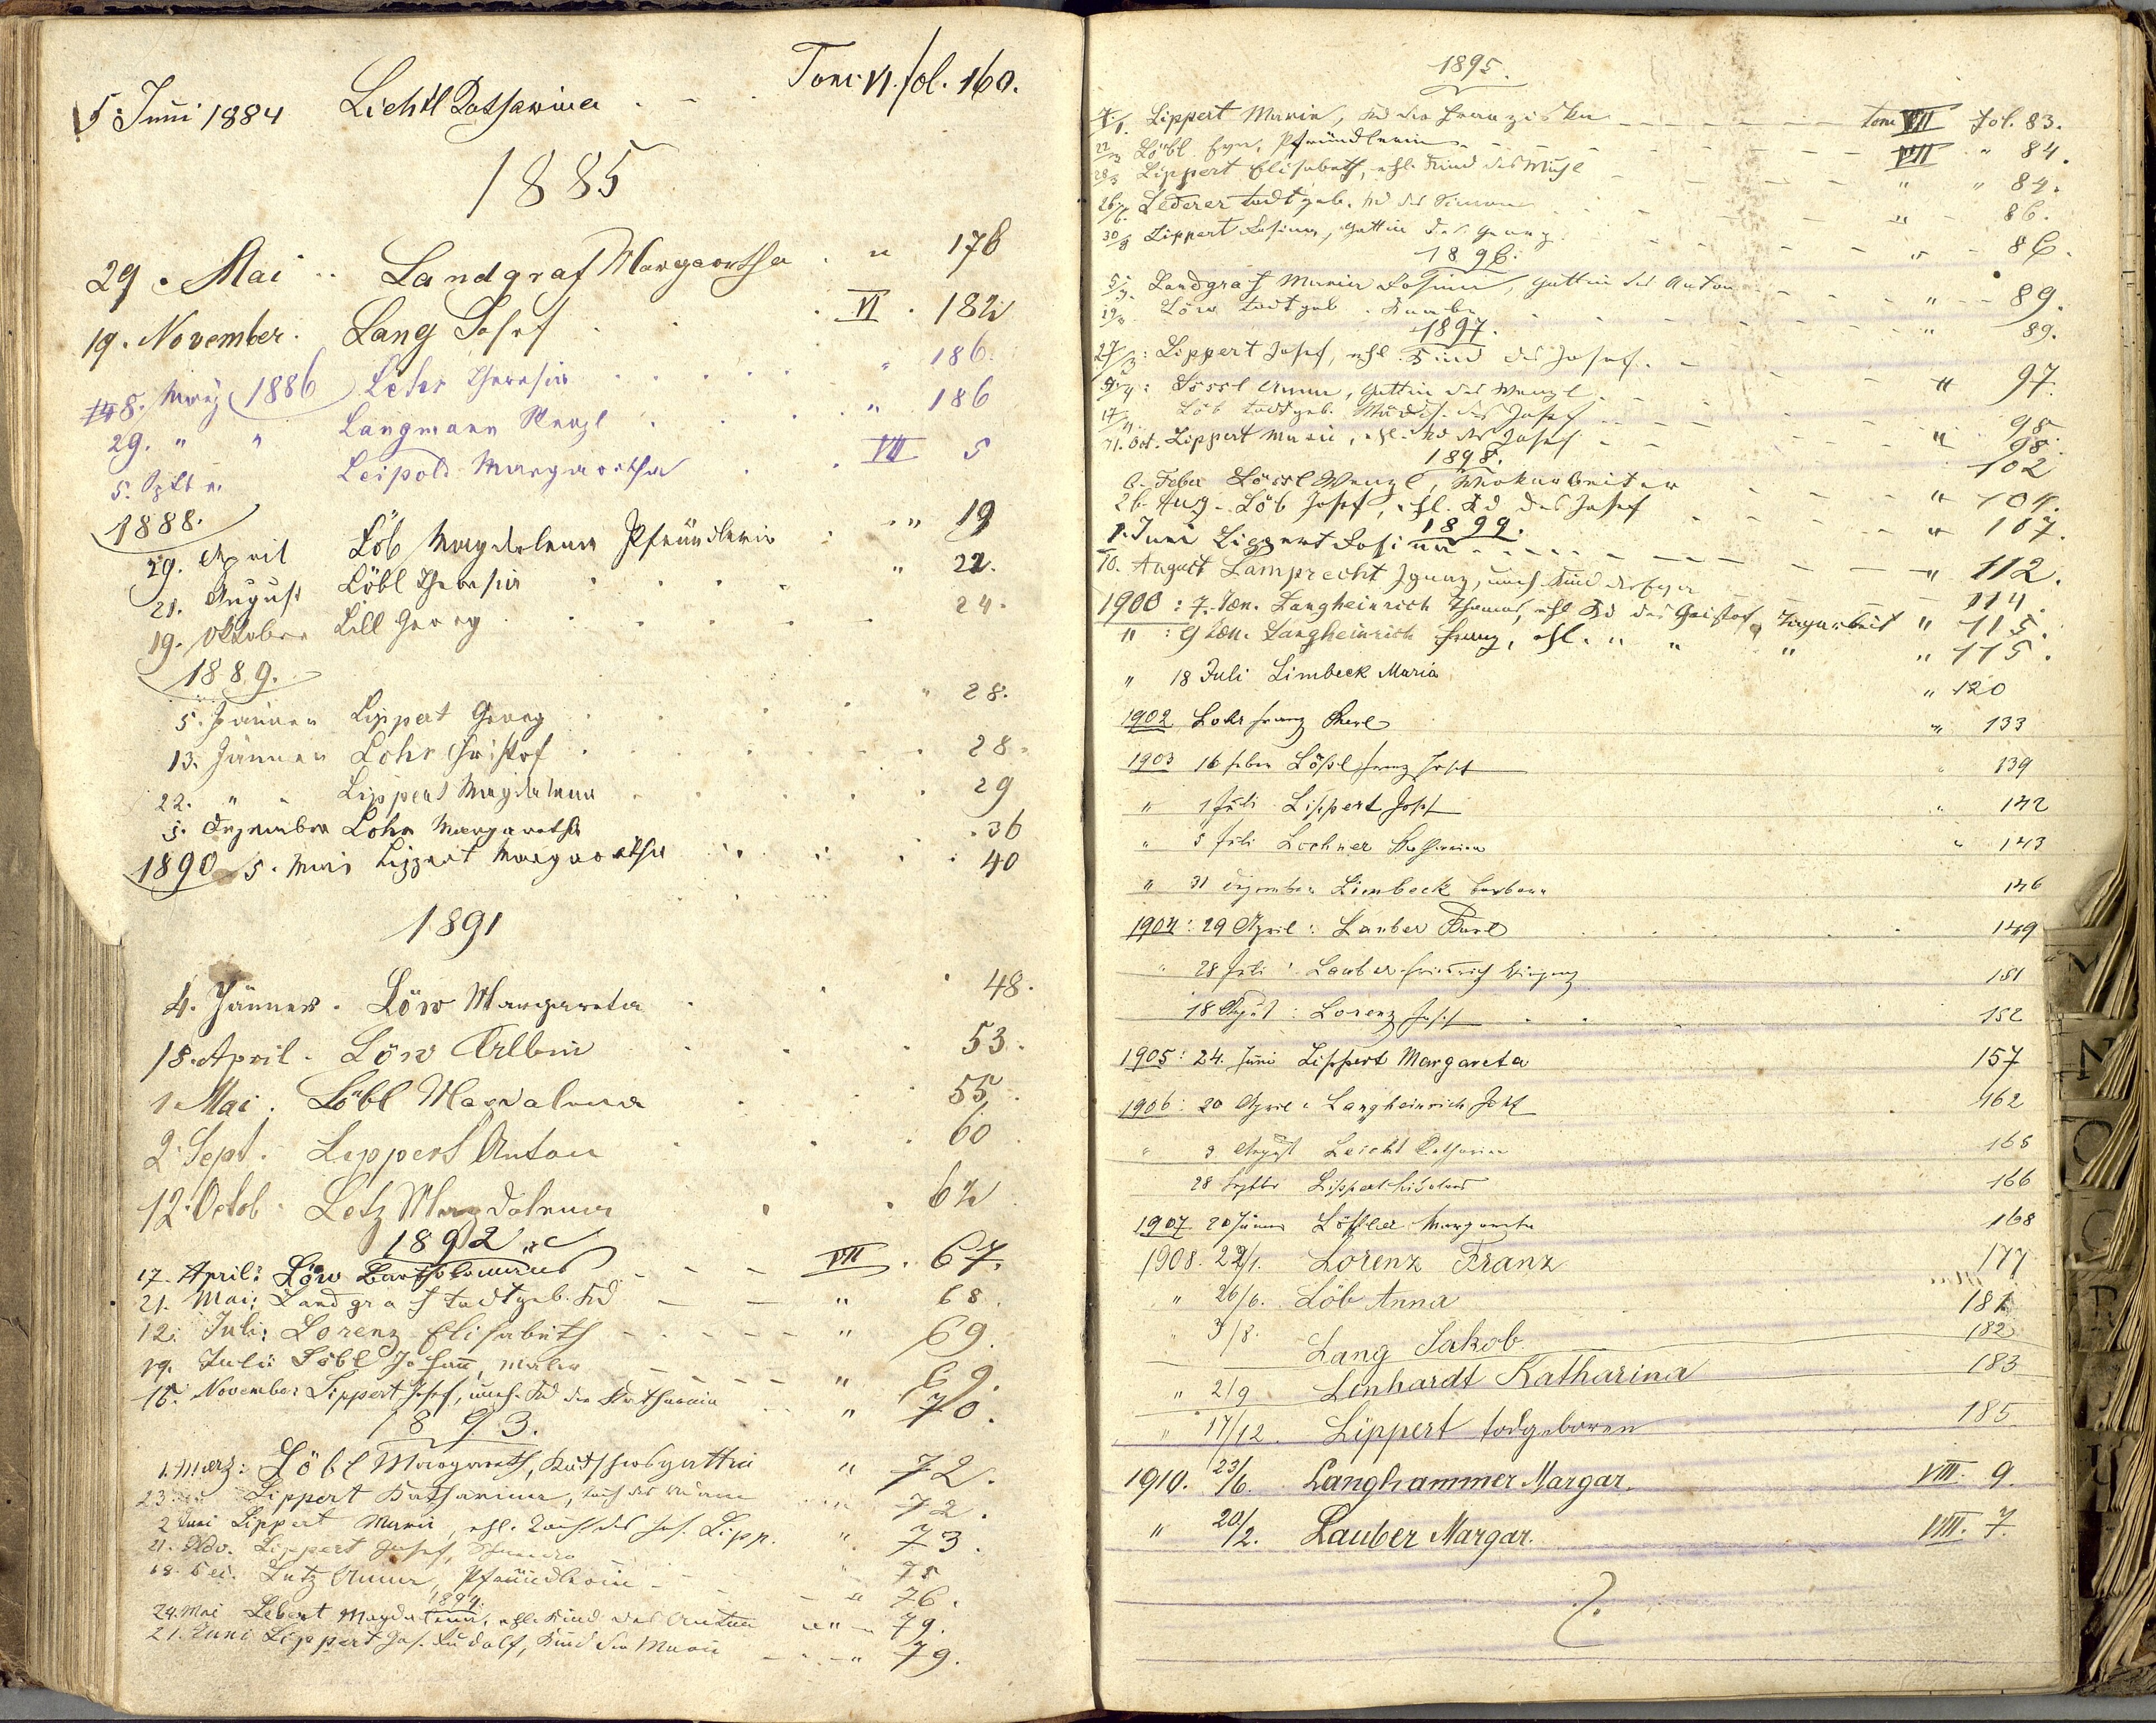 5. Juni 1884 Liehtl Katharina . - . Tom. VI. fol. 160.
1885
29. Mai .. Landgraf Margaretha . " 176
19. November. Lang Josef . . . VI . 182
8. März 1886 Lehr Theresia . . . . . " 186.
29. " " Langmann Wenzl . . . " 186
5. Leipold Margaretha . . VII 5
1888.
29. April Löb Magdalena Pfründlerin . . " 19
21. August Löbl Theresia . . . " 22.
19. Oktober Lill Georg . . . . . 24.
1889.
5. Jänner Lippert Georg . . . " 28.
13. Jänner Lohr Christof . . . . . . 28.
22. " " Lippert Magdalena . . . . . 29
5. Dezember Lohr Margaretha . 36
1890 5. Mai Lippert Margaretha . . . . . 40
1891
4. Jänner. Löw Margareta . . . 48.
18. April. Löw Albin . . . 53.
1 Mai. Löbl Magdalena . . . 55.
2. Sept. Lippert Anton . . . 60
12. Octob. Letz Magdalena . . 62
1892
17. April: Löw Bartholomäus - - - VII . 67.
21. Mai: Landgraf todtgeb. Kd - - " 68.
12. Juli: Lorenz Elisabeth - - - - - " 69.
19. Juli: Löbl Johann, Maler - - - " 69.
15. November Lippert Josef, uneh. Kd der Katharina " 70.
1893.
1. März: Löbl Margareth, Kutschersgattin " 72.
23. " Lippert Katharina, Toch. des Adam " 72.
2 Juni Lippert Maria, ehl. Toch. des Jos. Lipp. " 73.
21. Nov. Lippert Josef, " 75
18. Dei. Lutz Anna, Pfründlerin - - " 76.
1894.
24. Mai Lebert Magdalena, ehl. Kind des Anton " 79.
21. Juni Lippert Jos. Rudolf, Kind der Maria - - " 79.
1895.
7./1. Lippert Maria, Kd der Franziska - - - - tom VII fol. 83.
22/3 Löbl Eva, Pfründlerin - - - - VII " 84.
28/3 Lippert Elisabeth, ehl. Kind des Mich - - - " " 84.
26/6. Lederer todtgeb. Kd des Simon - - - " - 86.
30/8 Lippert Rosina, Gattin des Georg. - - - - " - 86.
1896.
5/3. Landgraf Maria Rosina, Gattin des Anton - - - " - 89.
19/ Löw todtgeb. Knabe - - - - " 89.
1897.
27/3: Lippert Josef, ehl. Kind des Josef. - - - " 97.
Lössl Anna, Gattin des Wenzl - - -
17/ Löb todtgeb. Mädch. des Josef - - - 98.
21. Oct. Lippert Maria, ehl. Kd des Josef - - - " 98.
1898.
6. Feber Lössl Wenzl, - - - 102
26. Aug. Löb Josef, ehl. Kd des Josef - - - " 104.
1899.
1. Juni Lippert Rosina - - - - " 107.
10. August Lamprecht Ignaz, uneh. Kind der Eva - - - " 112.
1900: 7. Jän. Langheinrich Thomas, ehl Kd des Christof, Tagarbeit " 114.
" : 9 Jän. Langheinrich Franz, ehl. " " " " 115.
" 115.
" 18 Juli Limbeck Maria " 120
1902 Lohr Franz Karl " 133
1903 16 Feber Lößl Franz Josef " 139
" 1 Juli Lippert Josef " 142
" 5 Juli Lochner Katharina " 143
" 31 Dezember Limbeck Barbara 146
1904: 29 April: Lauber Karl . . . . 149
" 28 Juli: Lauber Friedrich Vinzenz 151
18 August: Lorenz Josef . . . 152
1905: 24. Juni Lippert Margareta 157
1906: 20 April: Langheinrich Josef 162
" 3 August Leicht Katharina 165
28 Septbr Lippert Nikolaus 166
1907 20 Jänner Löffler Margareta 168
1908. 22/1. Lorenz Franz 177
" 26/6. Löb Anna 181
" 3/8. Lang Jakob. 182
" 2/9 Linhardt Katharina 183
" 17/12. Lippert todgeboren 185
1910. 23/6. Langhammer Margar. VIII. 9.
" 20/2. Lauber Margar. VIII. 7.
M
N
O